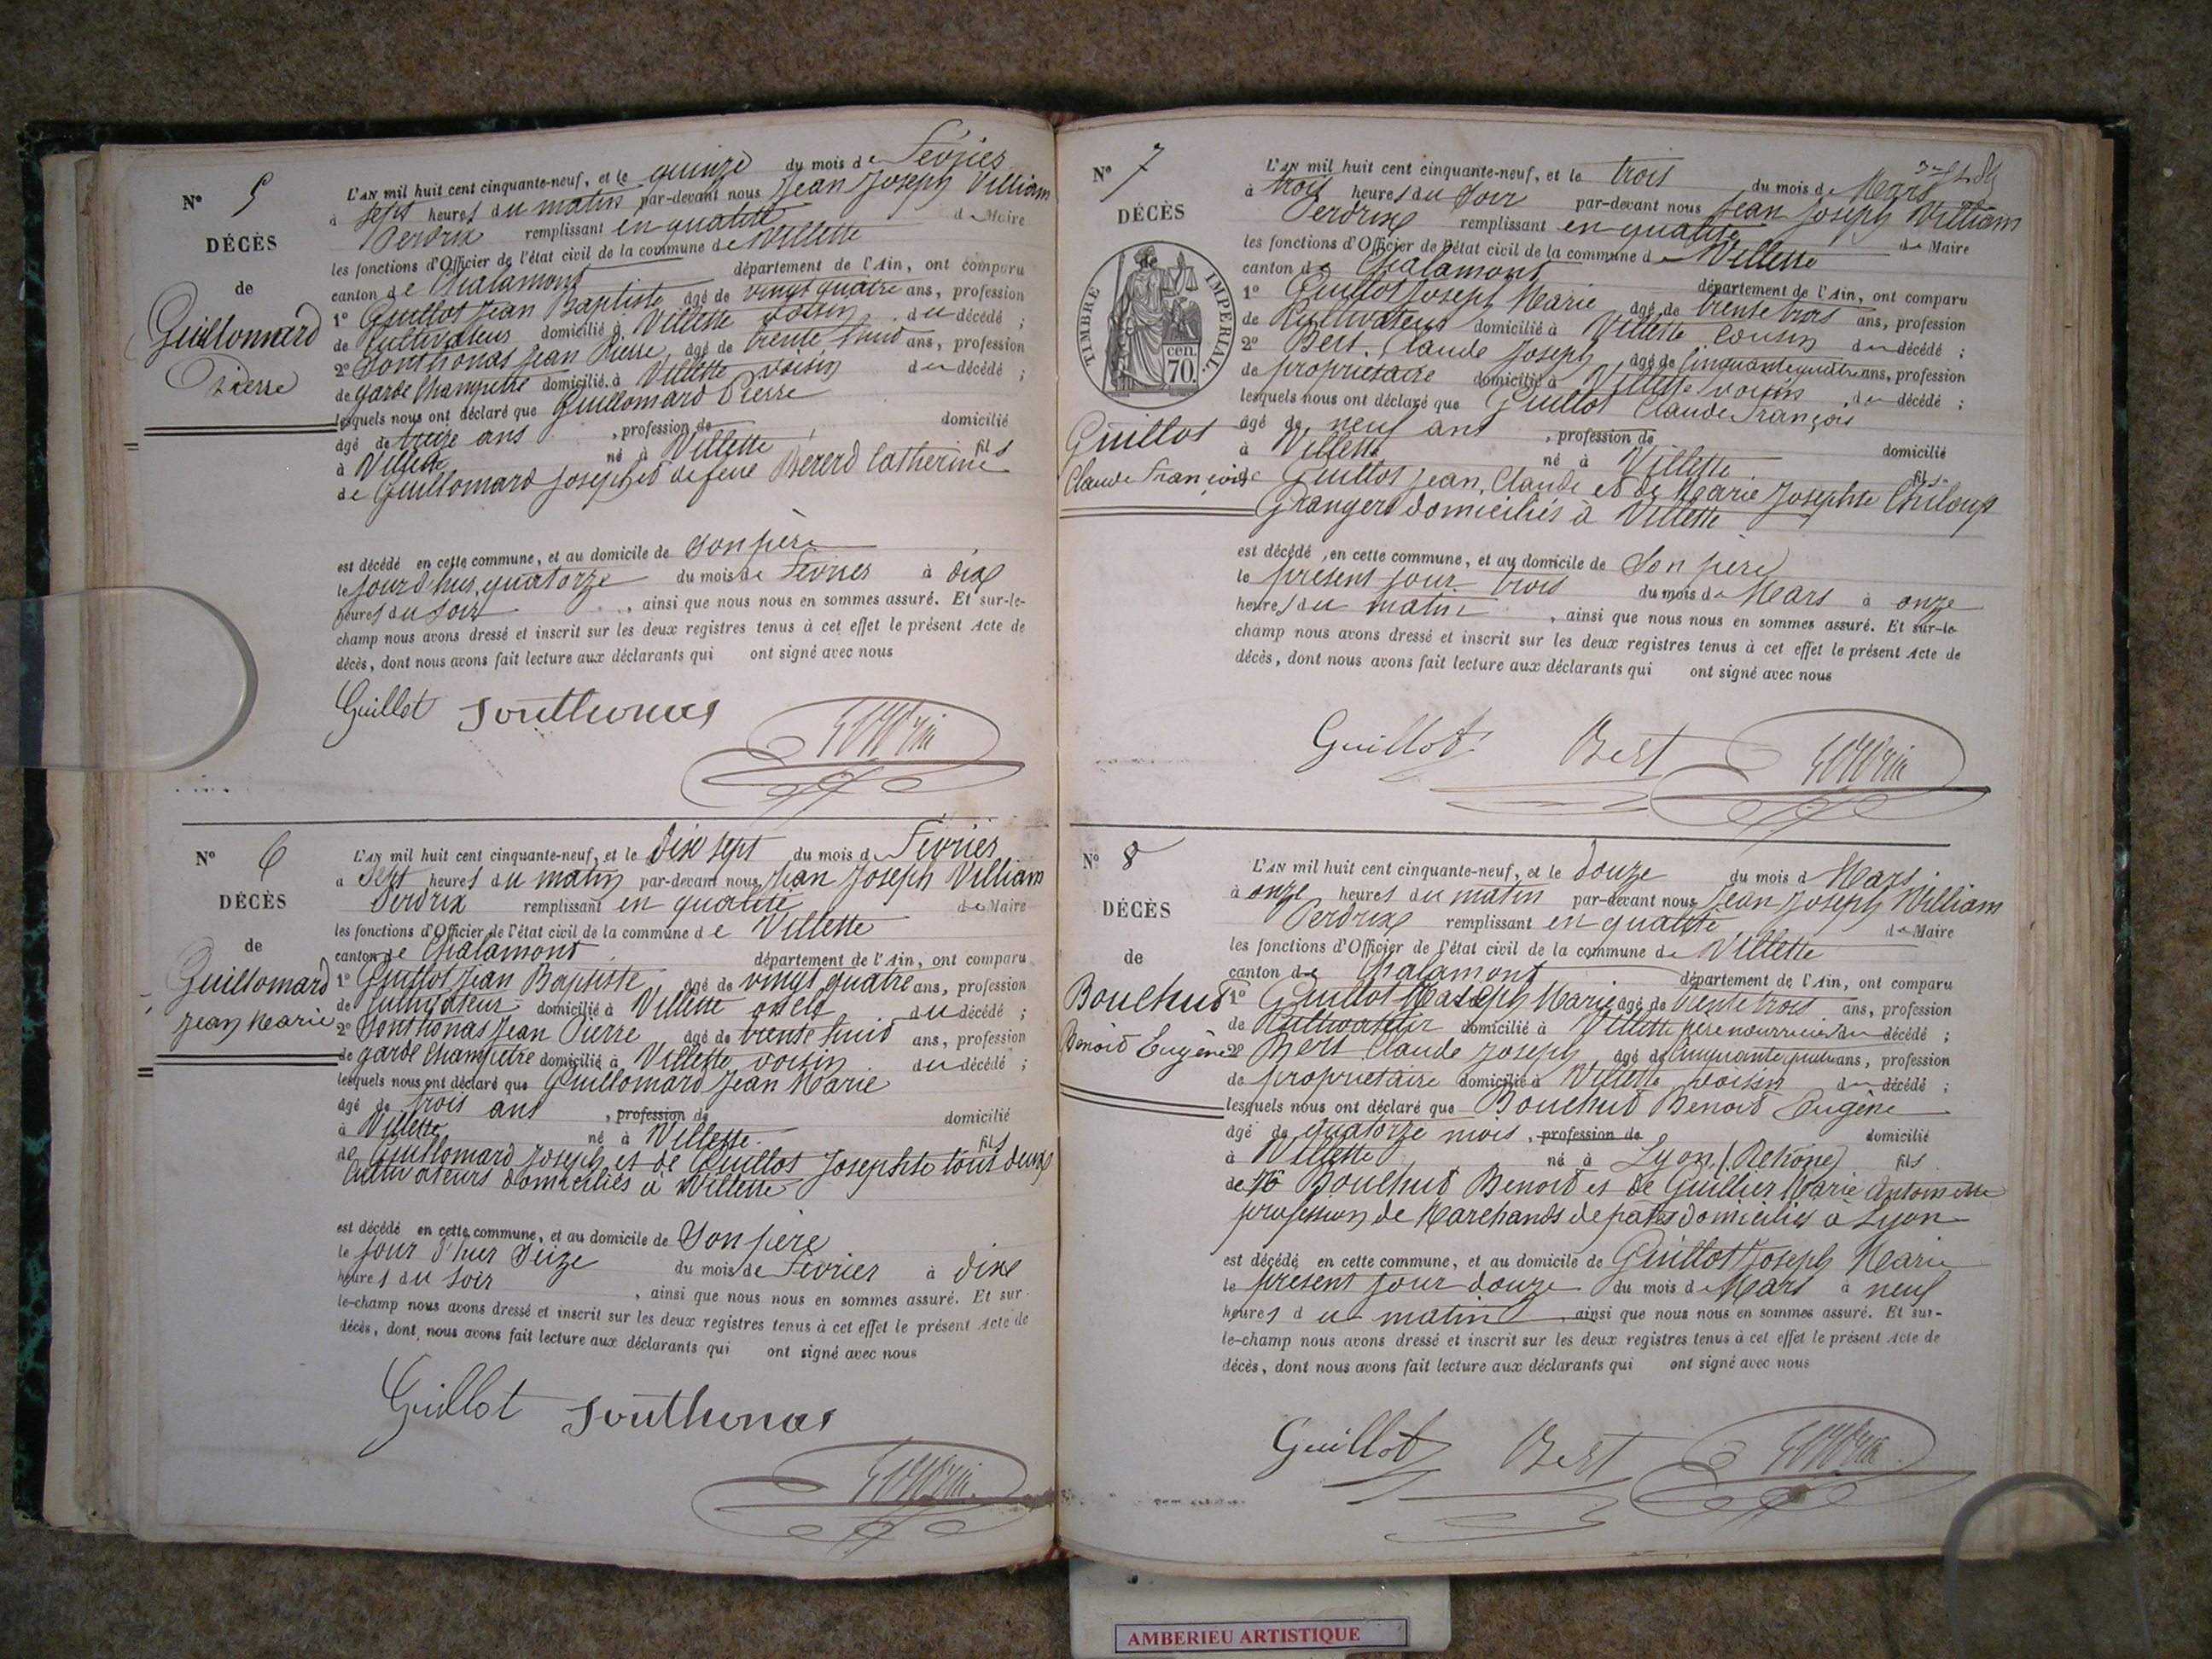 N° 5
DÉCÈS
de
Guillomard
Pierre
L'AN mil huit cent cinquante-neuf, et le quinze du mois de Février
à sept heures du matin par-devant nous Jean Joseph Villiam
Perdrix remplissant en qualité de Maire
les fonctions d'Officier de l'état civil de la commune de Villette
canton de Chalamont département de l'Ain, ont comparu
1° Guillot Jean Baptiste âgé de vingt quatre ans, profession
de Cultivateur domicilié à Villette voisin du décédé ;
2° Jean Pierre âgé de trente huit ans, profession
de garde Champetre domicilié à Villette voisin du décédé ;
lesquels nous ont déclaré que Guillomard Pierre
âgé de treize ans , profession de domicilié
à Villette né à Villette fils
de Guillomard Joseph et de feue Bererd Catherine
est décédé en cette commune, et au domicile de son père
le jourd'hier quatorze du mois de Février à dix
heures du soir , ainsi que nous nous en sommes assuré. Et sur-le-
champ nous avons dressé et inscrit sur les deux registres tenus à cet effet le présent Acte de
décès, dont nous avons fait lecture aux déclarants qui ont signé avec nous
Guillot
N° 6
DÉCÈS
de
Guillomard
Jean Marie
L'AN mil huit cent cinquante-neuf, et le dix sept du mois de Février
à sept heures du matin par-devant nous Jean Joseph Villiam
Perdrix remplissant en qualité de Maire
les fonctions d'Officier de l'état civil de la commune de Villette
canton de Chalamont département de l'Ain, ont comparu
1° Guillot Jean Baptiste âgé de vingt quatre ans, profession
de cultivateur domicilié à Villette oncle du décédé ;
2° Jean Pierre âgé de trente huit ans, profession
de garde Champetre domicilié à Villette voisin du décédé ;
lesquels nous ont déclaré que Guillomard Jean Marie
âgé de trois ans , profession de domicilié
à Villette né à Villette fils
de Guillomard Joseph et de Guillot Josephte tout deux
Cultivateurs domiciliés à Villette
est décédé en cette commune, et au domicile de Son père
le jour d'hier Seize du mois de Février à dix
heures du soir , ainsi que nous nous en sommes assuré. Et sur-
le-champ nous avons dressé et inscrit sur les deux registres tenus à cet effet le présent Acte de
décès, dont nous avons fait lecture aux déclarants qui ont signé avec nous
Guillot
N° 7
DÉCÈS
TIMBRE IMPÉRIAL
cen.
70.
Guillot
Claude François
L'AN mil huit cent cinquante-neuf, et le trois du mois de Mars
à trois heures du Soir par-devant nous Jean Joseph Villiam
Perdrix remplissant en qualité de Maire
les fonctions d'Officier de l'état civil de la commune de Villette
canton de Chalamont département de l'Ain, ont comparu
1° Guillot Joseph Marie âgé de trente trois ans, profession
de Cultivateur domicilié à Villette cousin du décédé ;
2° Bert Claude Joseph âgé de Cinquante quatre ans, profession
de propriétaire domicilié à Villette voisin du décédé ;
lesquels nous ont déclaré que Guillot Claude François
âgé de neuf ans , profession de domicilié
à Villette né à Villette fils
de Guillot Jean Claude et de Marie Josephte Chiloup
Grangers domiciliés à Villette
est décédé en cette commune, et au domicile de Son père
le présent jour trois du mois de Mars à onze
heures du matin , ainsi que nous nous en sommes assuré. Et sur-le-
champ nous avons dressé et inscrit sur les deux registres tenus à cet effet le présent Acte de
décès, dont nous avons fait lecture aux déclarants qui ont signé avec nous
Guillot Bert
N° 8
DÉCÈS
de
Bouchut
Benoit Eugène
L'AN mil huit cent cinquante-neuf, et le douze du mois de Mars
à onze heures du matin par-devant nous Jean Joseph Villiam
Perdrix remplissant en qualité de Maire
les fonctions d'Officier de l'état civil de la commune de Villette
canton de Chalamont département de l'Ain, ont comparu
1° Guillot Joseph Marie âgé de trente trois ans, profession
de Cultivateur domicilié à Villette père nourricier du décédé ;
2° Bert Claude Joseph âgé de Cinquante quatre ans, profession
de propriétaire domicilié à Villette voisin du décédé ;
lesquels nous ont déclaré que Bouchut Benoit Eugène
âgé de quatorze mois , profession de domicilié
à Villette né à Lyon (Rhône) fils
de Bouchut Benoit et de Guillier Marie Antoinette
profession de Marchands de pates domiciliés à Lyon
est décédé en cette commune, et au domicile de Guillot Joseph Marie
le présent jour douze du mois de Mars à neuf
heures du matin ainsi que nous nous en sommes assuré. Et sur-
le-champ nous avons dressé et inscrit sur les deux registres tenus à cet effet le présent Acte de
décès, dont nous avons fait lecture aux déclarants qui ont signé avec nous
Guillot Bert
AMBERIEU ARTISTIQUE